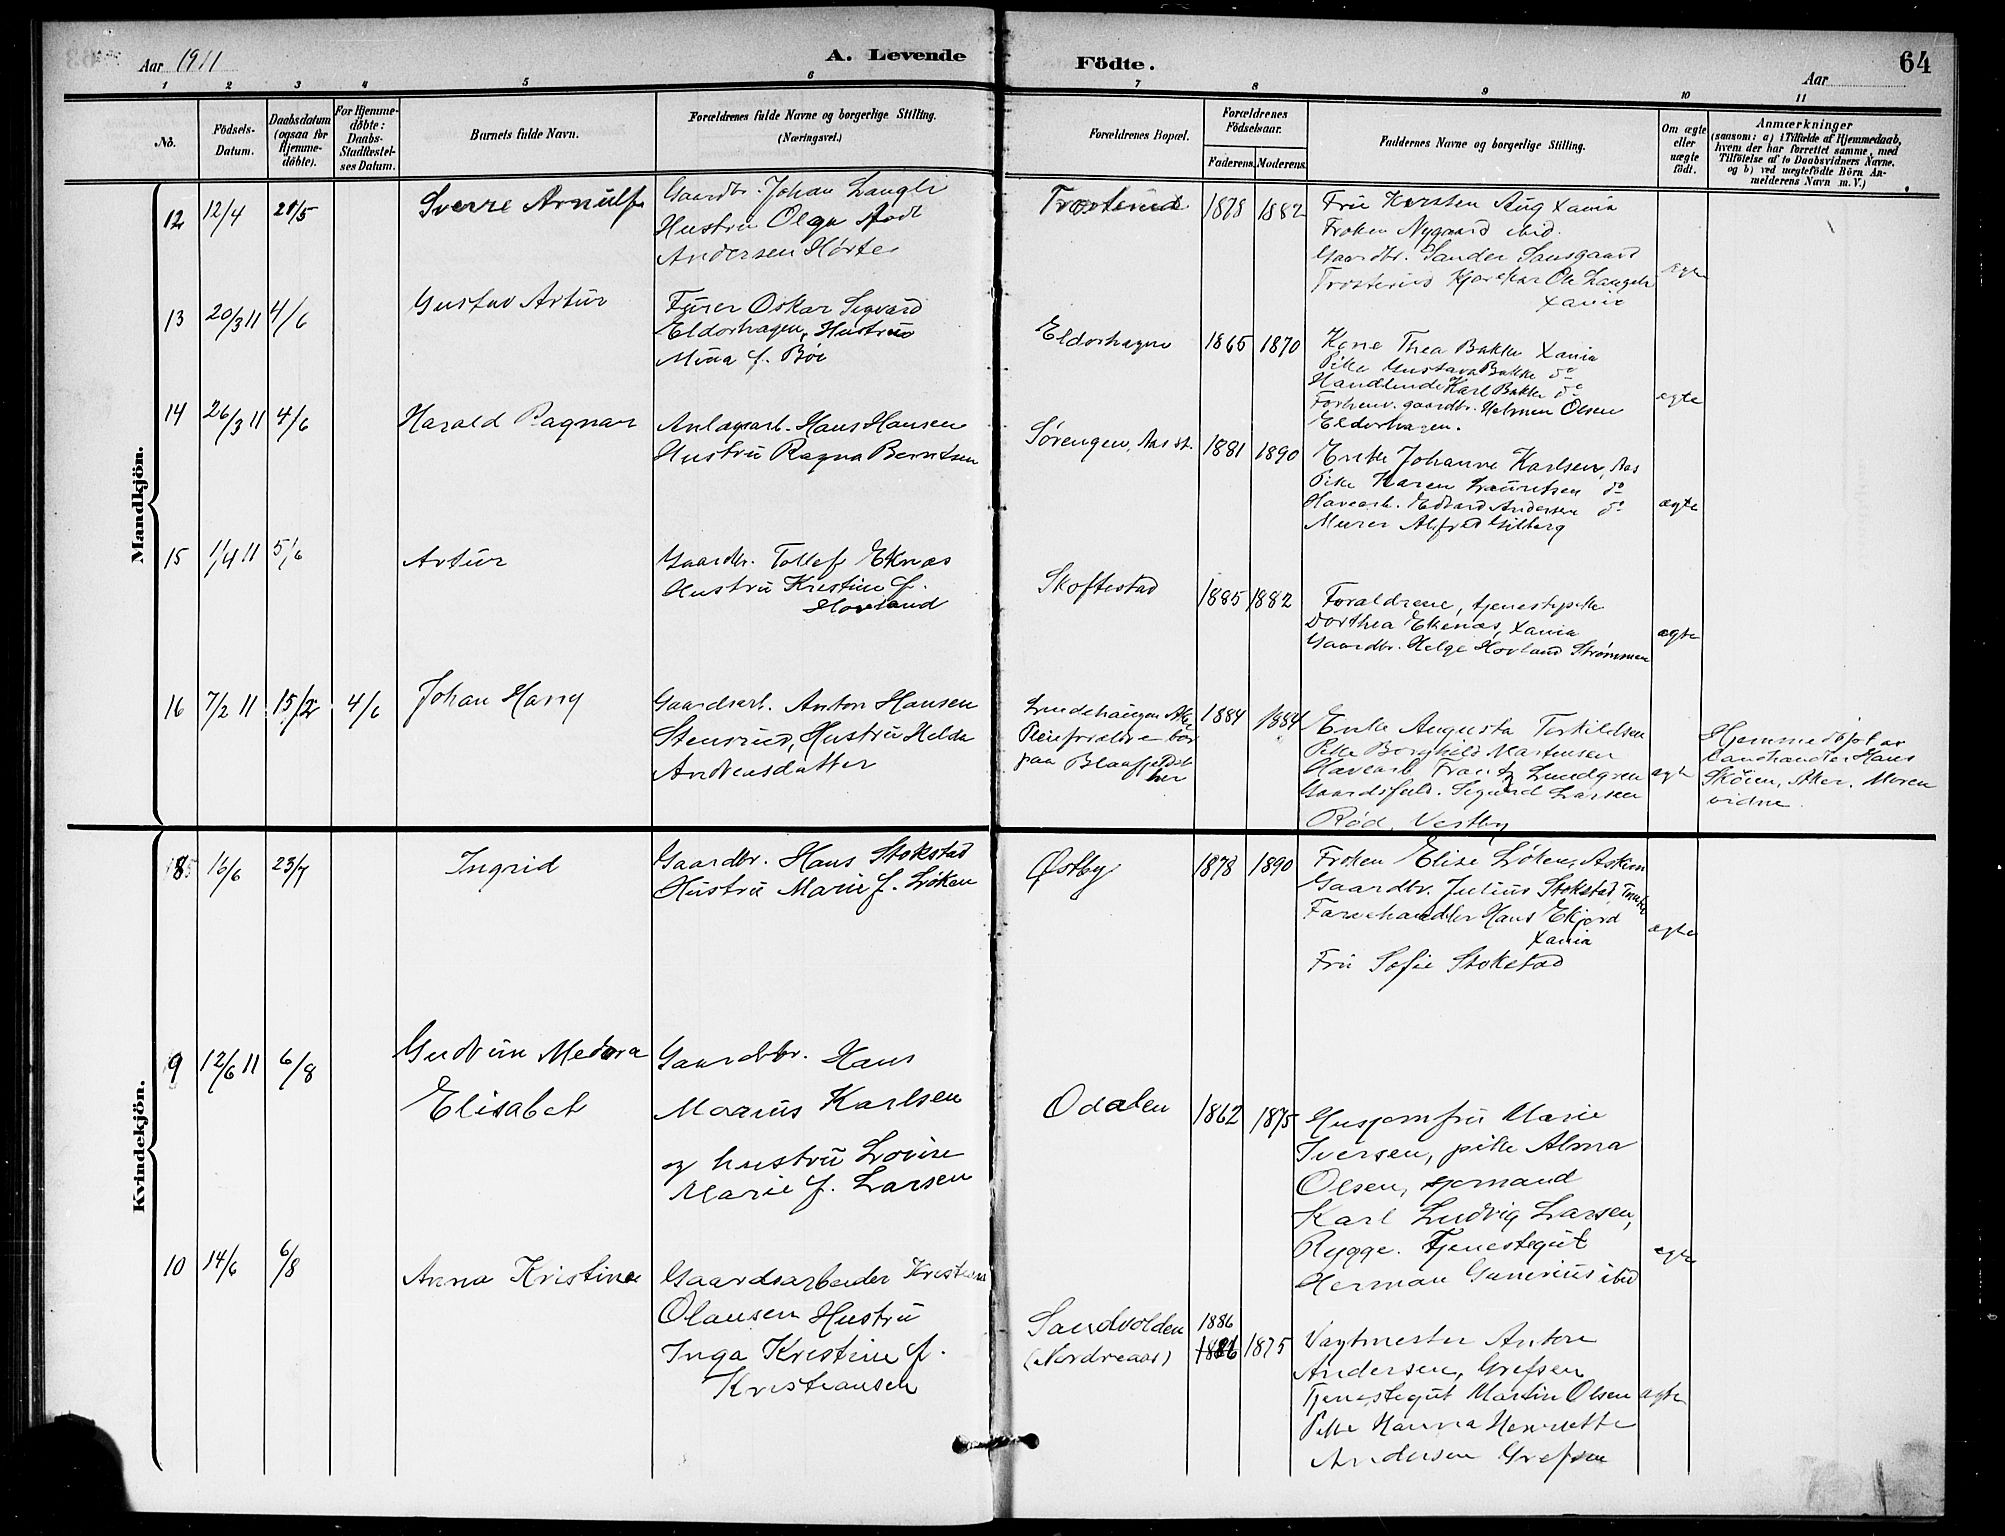 Aar 1911
A. Levende
Födte.
64
Aar
1 2 3 4 5 6 7 8 9 10 11
No.
Födsels-
Datum.
Daabsdatum
(ogsaa for
Hjemme-
döbte).
For Hjemme-
döbte:
Daabs-
Stadfæstel-
ses Datum.
Barnets fulde Navn.
Forældrenes fulde Navne og borgerlige Stilling.
(Næringsvei.)
Forældrenes Bopæl.
Forældrenes
Födselsaar.
Faderens. Moderens.
Faddernes Navne og borgerlige Stilling.
Om ægte
eller
uægte
födt.
Anmærkninger
(saasom: a) i Tilfælde af Hjemmedaab,
hvem der har forrettet samme, med
Tilföielse af to Daabsvidners Navne,
og b) ved uægtefödte Börn An-
melderens Navn m. V.)
Mandkjön.
12 12/4 21/5
Sverre Arnulf
Gaardbr. Johan Langli
Hustru Olga födt
Andersen Hørte
Trosterud
1878 1882
Fru Karsten Aug Xania
Frøken Nygaard ibid.
Gaardbr. Sander Sansgaard
Trosterud Ole Langeli
Xania
ægte
13 20/3 11 4/6
Gustav Artur
Furer Oskar Sigvard
Eldorhagen, Hustru
Mina f. Bøe
Eldorhagen
1865 1870
Kone Thea Bakke Xania
Pike Gustava Bakke do
Handlende Karl Bakke do
Forhenv. gaardbr. Helmen Olsen
Eldorhagen.
ægte
14 26/3 11 4/6
Harald Ragnar
Anlægsarb. Hans Hansen
Hustru Ragna Berntsen
Sørengen, Aas st.
1881 1890
Enke Johanne Karlsen, Aas
Pike Karen Lauritsen do
Havearb. Edvard Andersen do
Murer Alfred Gilberg
ægte
15 1/4 11 5/6
Artur
Gaardbr. Tollef Eknæs
Hustru Kristine f.
Hovland
Skoftestad
1885 1882
Forældrene, tjenestepike
Dorthea Ekenæs, Xania
Gaardbr. Helge Hovland Strømmen
ægte
16 7/2 11 15/2 4/6
Johan Harry
Gaardsarb. Anton Hansen
Stensrud, Hustru Helda
Andreasdatter
Lindehaugen Aker
Pleieforældre bor
paa Blaafjeldst
her
1884 1884
Enke Augusta Terkildsen
Pike Borghild Martensen
Havearb Frantz Lundgren
Gaardsfuld. Sigurd Larsen
Rød, Vestby
ægte
Hjemmedøpt av
Landhandler Hans
Skøien, Aker. Moren
vidne.
Kvindekjön.
8 16/6 23/7
Ingrid
Gaardbr. Hans Stokstad
Hustru Marie f. Løken
Østby
1878 1890
Frøken Elise Løken, Askim
Gaardbr. Julius Stokstad,
Farvehandler Hans Ekjord
Xania
Fru Sofie Stokstad
ægte
9 12/6 11 6/8
Gudrun Medora
Elisabet
Gaardbr. Hans
Marius Karlsen
og hustru Lovise
Marie f. Larsen
Odalen
1862 1875
Husjomfru Marie
Iversen, pike Alma
Olsen, sjømand
Karl Ludvig Larsen,
Rygge. Tjenestegut
Herman Gunerius ibid
ægte
10 14/6 6/8
Anna Kristine
Gaardsarbeider Kristian
Olausen Hustru
Inga Kristine f.
Kristiansen
Sandvolden
(Nordreaas)
1886
1886 1875
Vagtmester Anton
Andersen, Grefsen
Tjenestegut Martin Olsen
Pike Hanna Henriette
Andersen Grefsen
ægte